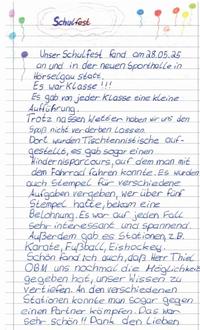 Schulfest
Unser Schulfest fand am 28.05.25
an und in der neuen Sporthalle in
Hörselgau statt.
Es war Klasse!!!
Es gab von jeder Klasse eine kleine
Aufführung.
Trotz nassen Wetter haben wir uns den
Spaß nicht verderben lassen.
Dort wurden Tischtennistische auf-
gestellt, es gab sogar einen
Hindernisparcours, auf dem man mit
dem Fahrrad fahren konnte. Es wurden
auch Stempel für verschiedene
Aufgaben vergeben, wer über fünf
Stempel hatte, bekam eine
Belohnung. Es war auf jeden Fall
sehr interessant und spannend.
Außerdem gab es Stationen, z.B.
Karate, Fußball, Eishockey.
Schön fand ich auch, daß Herr Thiel
uns nochmal die Möglichkeit
gegeben hat, unser Wissen zu
vertiefen. An den verschiedenen
Stationen konnte man sogar gegen
einen Partner kämpfen. Das war
sehr schön!! Dank den lieben